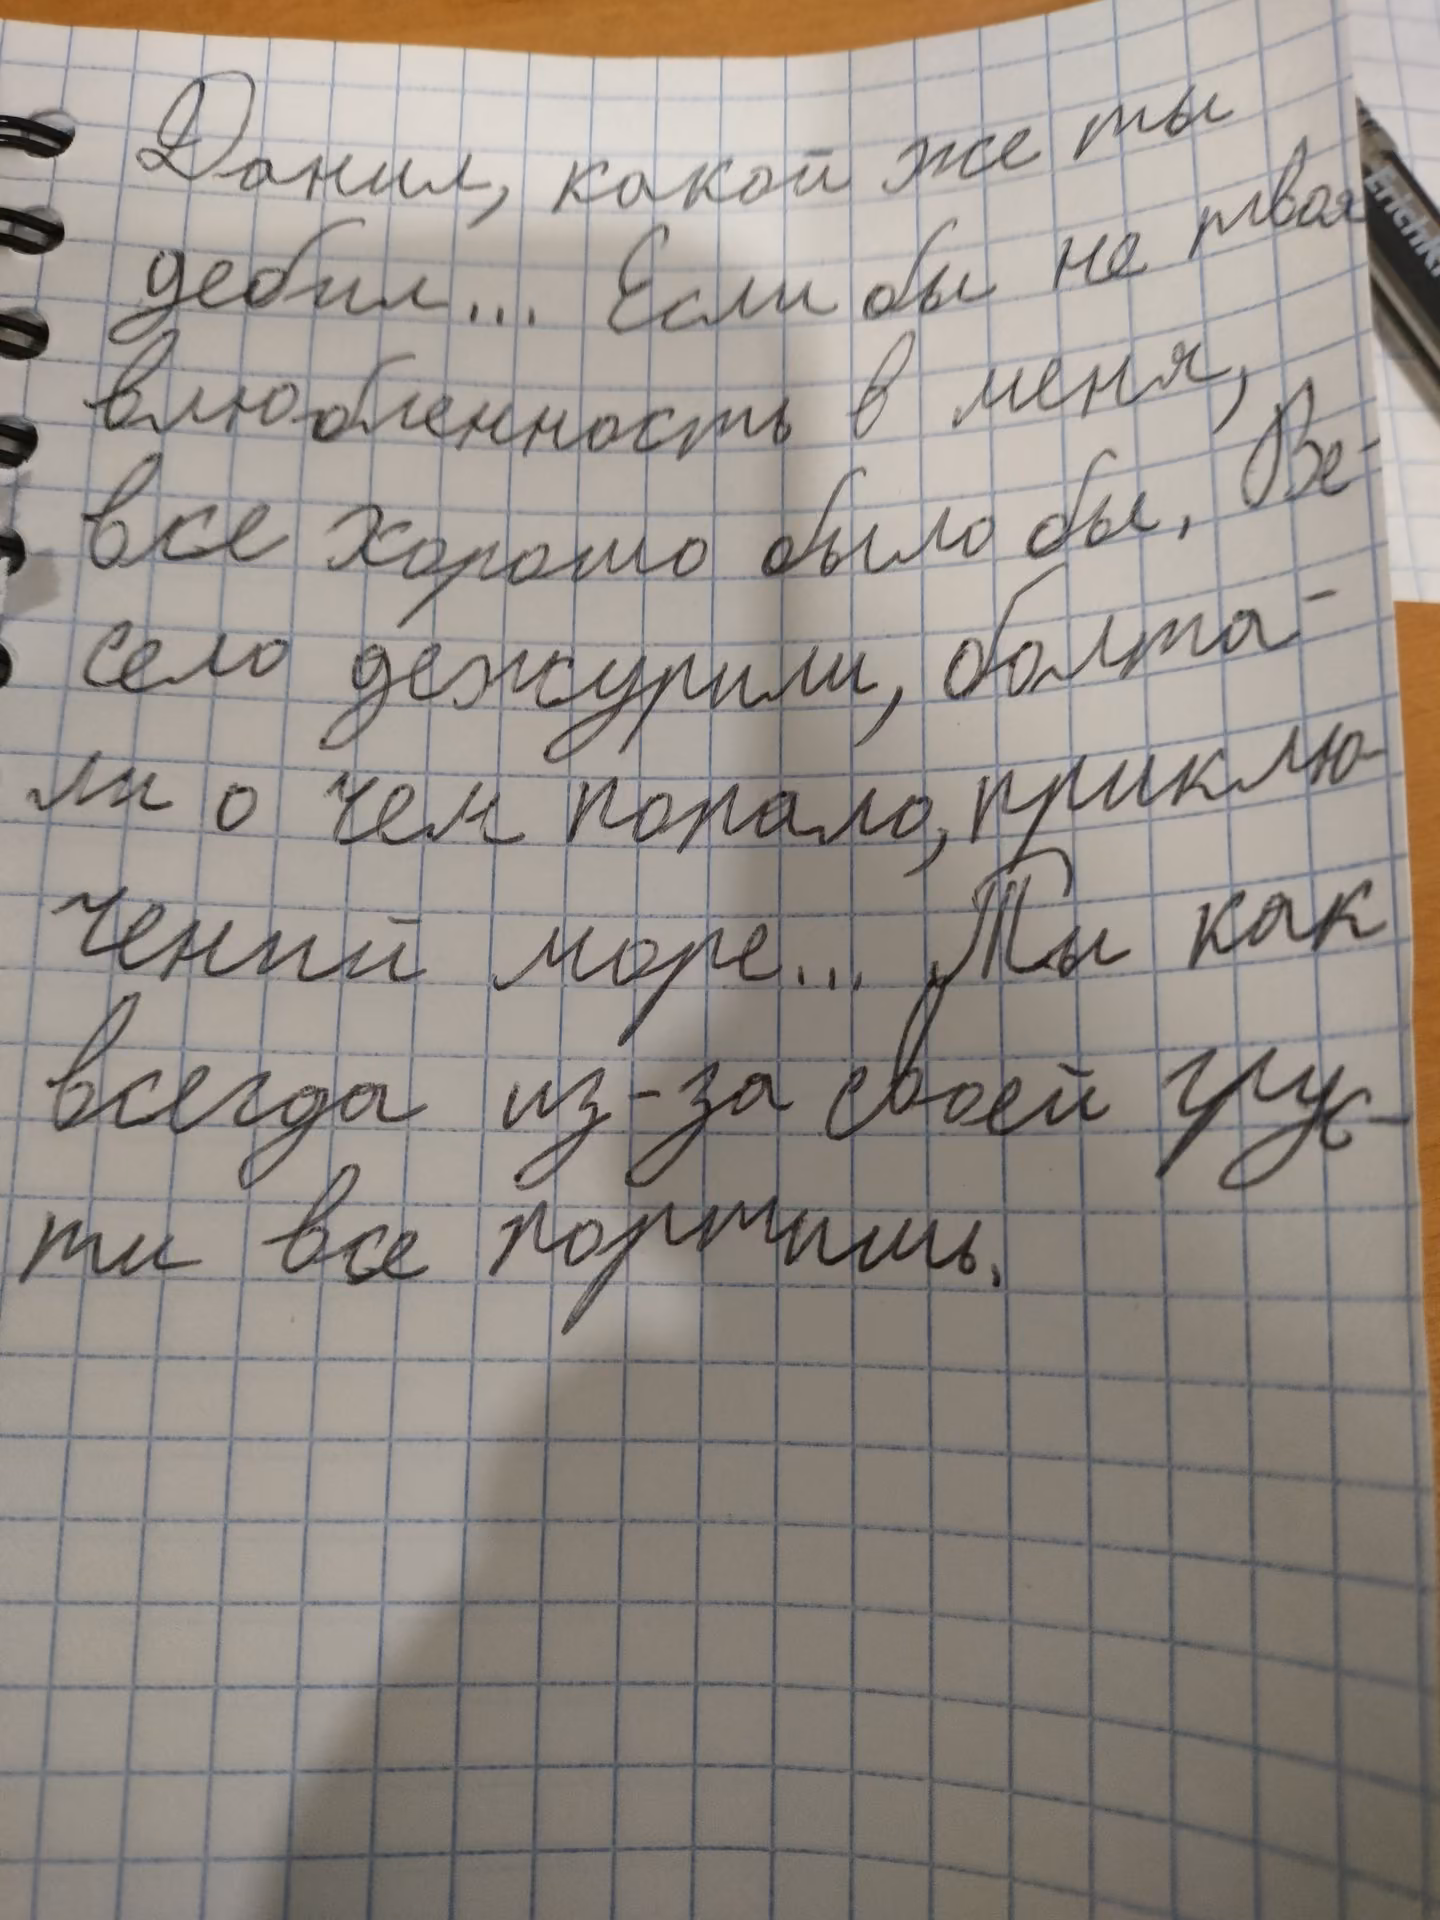 Данил, какой же ты
дебил... Если бы не твоя
влюбленность в меня,
все хорошо было бы. Ве-
село дежурили, болта-
ли о чем попало, приклю-
чений море... Ты как
всегда из-за своей грус-
ти все портишь.
ErichKr